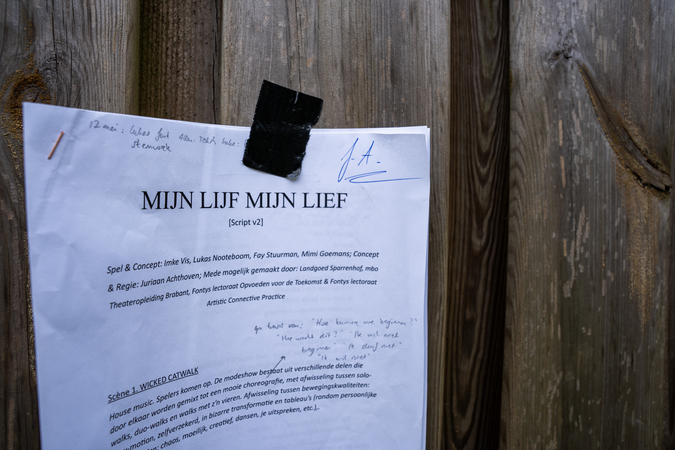 12 mei: Lukas
stemwerk
J.A.
MIJN LIJF MIJN LIEF
[Script v2]
Spel & Concept: Imke Vis, Lukas Nooteboom, Fay Stuurman, Mimi Goemans; Concept
& Regie: Juriaan Achthoven; Mede mogelijk gemaakt door: Landgoed Sparrenhof, mbo
Theateropleiding Brabant, Fontys lectoraat Opvoeden voor de Toekomst & Fontys lectoraat
Artistic Connective Practice
"Hoe kunnen we beginnen?"
"Hoe werkt dit?" "Ik wil niet
beginnen" "Ik durf niet"
"Ik wil niet"
Scène 1. WICKED CATWALK
House music. Spelers komen op. De modeshow bestaat uit verschillende delen die
door elkaar worden gemixt tot een mooie choreografie, met afwisseling tussen solo-
walks, duo-walks en walks met z'n vieren. Afwisseling tussen bewegingskwaliteiten:
zelfverzekerd, in bizarre transformatie en tableau's (random persoonlijke
chaos, moeilijk, creatief, dansen, je uitspreken, etc.).